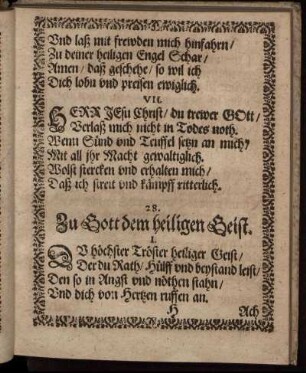 Vnd laß mit frewden mich hinfahrn/
Zu deiner heiligen Engel Schar/
Amen/ daß geschehe/ so wil ich
Dich lobn vnd preisen ewiglich.
VII.
HERR JEsu Christ/ du trewer GOtt/
Verlaß mich nicht in Todes noth.
Wenn Sünd vnd Teuffel setzn an mich/
Mit all jhr Macht gewaltiglich.
Wolst stercken vnd erhalten mich/
Daß ich streit vnd kämpff ritterlich.
28.
Zu Gott dem heiligen Geist.
I.
DV höchster Tröster heiliger Geist/
Der du Rath/ Hülff vnd beystand leist/
Den so in Angst vnd nöthen stahn/
Vnd dich von Hertzen ruffen an.
H Ach